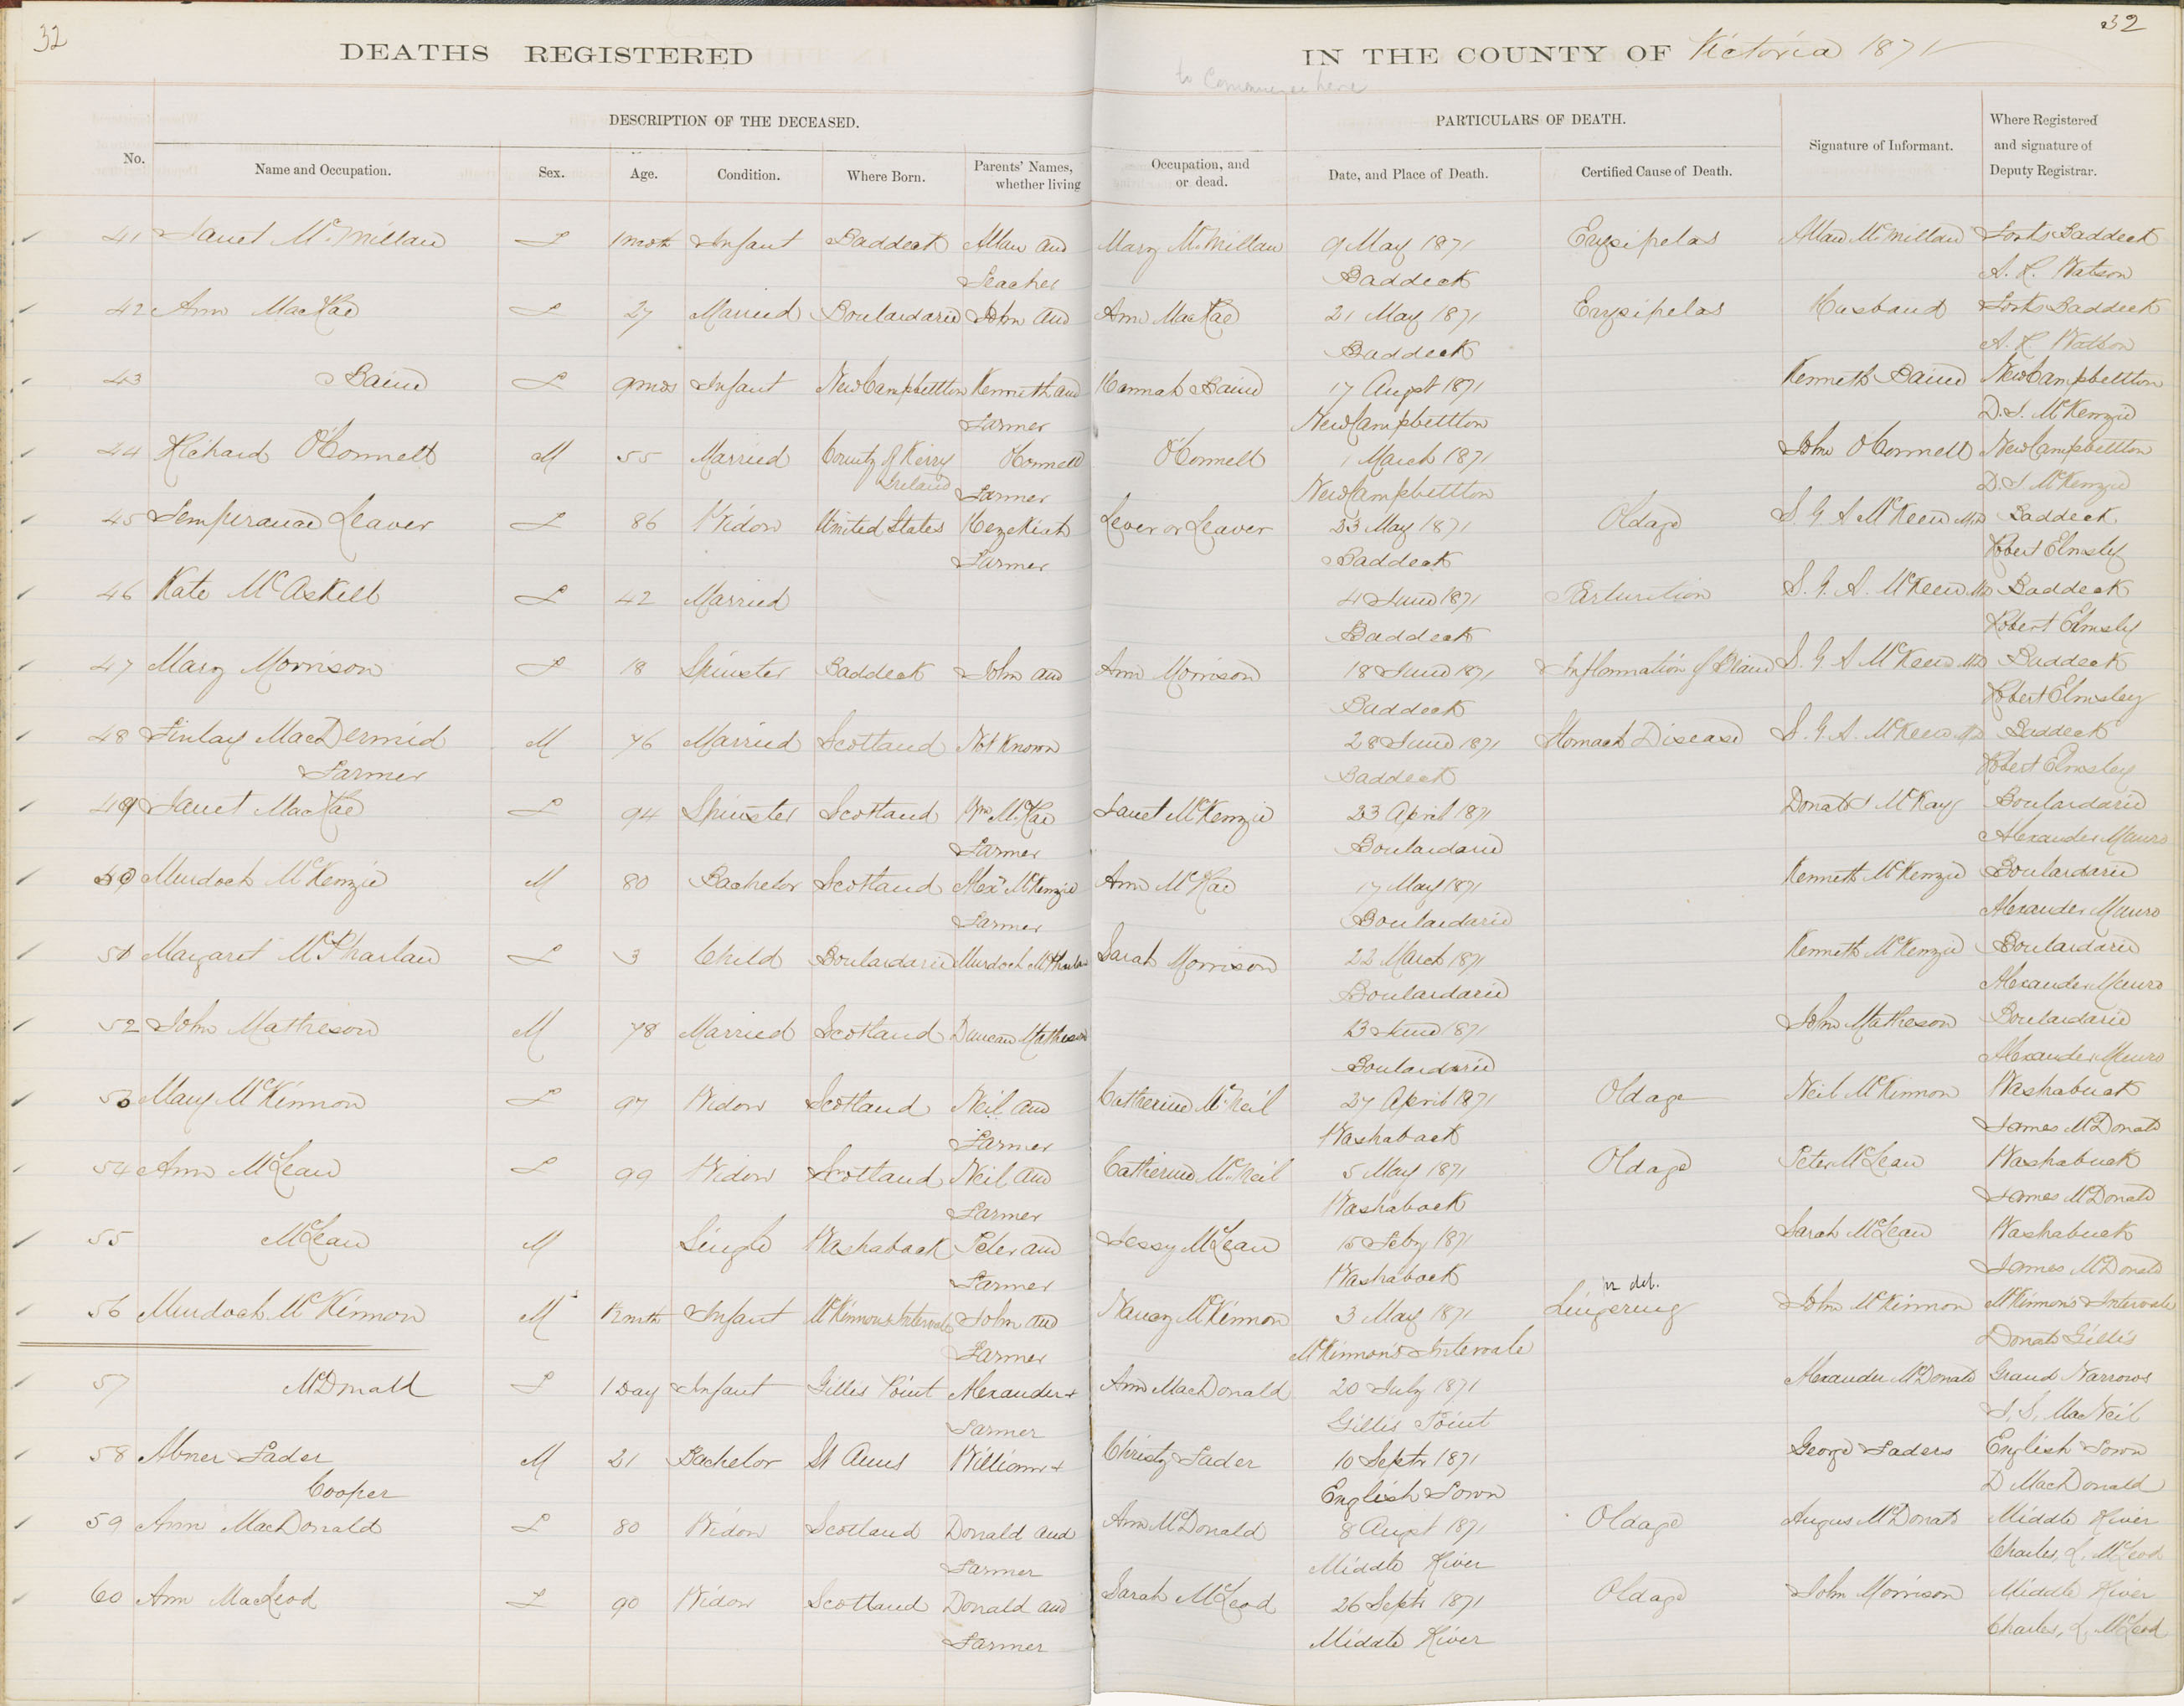 32
32
DEATHS REGISTERED IN THE COUNTY OF Victoria 1871
to Commence here
DESCRIPTION OF THE DECEASED. PARTICULARS OF DEATH.
No. Name and Occupation. Sex. Age. Condition. Where Born. Parents' Names, whether living Occupation, and or dead. Date, and Place of Death. Certified Cause of Death. Signature of Informant. Where Registered and signature of Deputy Registrar.
41 Janet McMillan F 1 moth Infant Baddeck Allan and Mary McMillan 9 May 1871 Erysipelas Allan McMillan Forks Baddeck
Teacher Baddeck A. F. Watson
42 Ann MacRae F 27 Married Boulardarie John and Ann MacRae 21 May 1871 Erysipelas Husband Forks Baddeck
Baddeck A. F. Watson
43 Baird F 9 mos Infant New Campbellton Kenneth and Hannah Baird 17 Augst 1871 Kenneth Baird New Campbellton
Farmer New Campbellton D. J. McKenzie
44 Richard O'Connell M 55 Married County of Kerry O'Connell O'Connell 1 March 1871 John O'Connell New Campbellton
Ireland Farmer New Campbellton D. J. McKenzie
45 Temperance Leaver F 86 Widow United States Hezekiah Lever or Leaver 23 May 1871 Old age S. G. A. McKeen MD Baddeck
Farmer Baddeck Robert Elmsly
46 Kate McAskill F 42 Married 4 June 1871 Parturition S. G. A. McKeen MD Baddeck
Baddeck Robert Elmsly
47 Mary Morrison F 18 Spinster Baddeck John and Ann Morrison 18 June 1871 Inflammation of Brain S. G. A. McKeen MD Baddeck
Baddeck Robert Elmsley
48 Finlay MacDermid M 76 Married Scotland Not Known 28 June 1871 Stomach Disease S. G. A. McKeen MD Baddeck
Farmer Baddeck Robert Elmsley
49 Janet MacRae F 94 Spinster Scotland Wm McRae Janet McKenzie 23 April 1871 Donald J McKay Boulardarie
Farmer Boulardarie Alexander Munro
50 Murdoch McKenzie M 80 Bachelor Scotland Alexr McKenzie Ann McRae 17 May 1871 Kenneth McKenzie Boulardarie
Farmer Boulardarie Alexander Munro
51 Margaret McPharlan F 3 Child Boulardarie Murdoch McPharlan Sarah Morrison 22 March 1871 Kenneth McKenzie Boulardarie
Boulardarie Alexander Munro
52 John Matheson M 78 Married Scotland Duncan Matheson 23 June 1871 John Matheson Boulardarie
Boulardarie Alexander Munro
53 Mary McKinnon F 97 Widow Scotland Neil and Catherine McNeil 27 April 1871 Old age Neil McKinnon Washabuck
Farmer Washaback James McDonald
54 Ann McLean F 99 Widow Scotland Neil and Catherine McNeil 5 May 1871 Old age Peter McLean Washabuck
Farmer Washaback James McDonald
55 McLean M Single Washaback Peter and Jessy McLean 15 Feby 1871 Sarah McLean Washabuck
Farmer Washaback James McDonald
56 Murdoch McKinnon M 12 mth Infant McKinnons Intervale John and Nancy McKinnon 3 May 1871 Lingering John McKinnon McKinnons Intervale
Farmer McKinnon's Intervale Donald Gillis
57 McDonald F 1 Day Infant Gillis Point Alexander + Ann MacDonald 20 July 1871 Alexander McDonald Grand Narrows
Farmer Gillis Point J. S. MacNeil
58 Abner Fader M 21 Bachelor St Anns William + Christy Fader 10 Septr 1871 George Faders English Town
Cooper English Town D MacDonald
59 Ann MacDonald F 80 Widow Scotland Donald and Ann McDonald 8 Augst 1871 Old age Angus McDonald Middle River
Farmer Middle River Charles L. McLeod
60 Ann MacLeod F 90 Widow Scotland Donald and Sarah McLeod 26 Septr 1871 Old age John Morrison Middle River
Farmer Middle River Charles L. McLeod